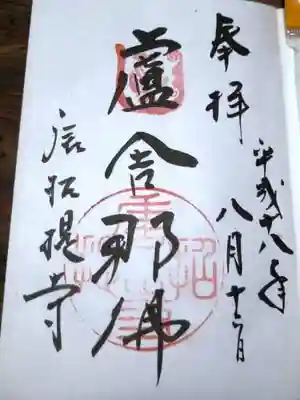 奉拝
平成十八年
八月十二日
盧舎那佛
唐招提寺